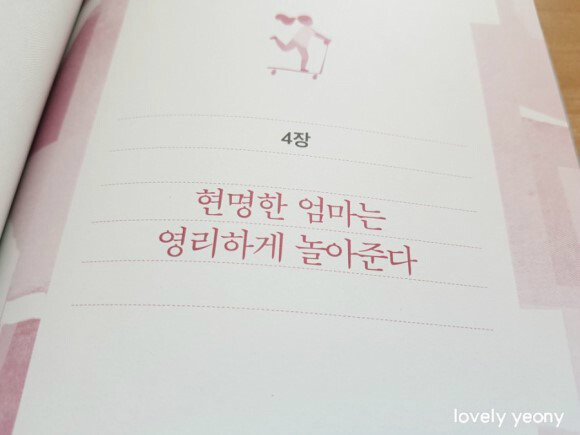 4장
현명한 엄마는
영리하게 놀아준다
lovely yeony